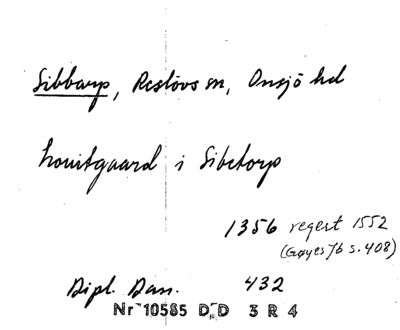 Sibbarp, Reslövs sn, Onsjö hd
houitgaard i Sibetorp
1356 regest 1552
(Gøyes Jb s. 408)
Dipl. Dan. 432
Nr 10585 D D 3 R 4